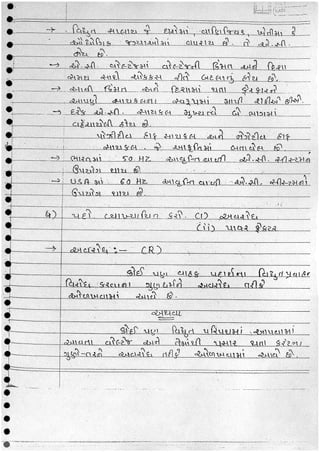 → વિદ્યુત સપ્લાય જે ઘરોમાં, વાણિજ્યિક, ખેતીમાં કે
ઔદ્યોગિક જગ્યાઓમાં વપરાય છે. તે એ.સી.
હોય છે.
→ એ.સી. વોલ્ટેજમાં વોલ્ટેજની કિંમત અને દિશા
સમય સાથે ચોક્કસ રીતે બદલાતું હોય છે.
→ આની કિંમત અને દિશામાં થતા ફેરફારને
આપણે સાયકલના સ્વરૂપમાં માપી શકીએ છીએ
→ દરેક એ.સી. સાયકલ મુખ્યત્વે બે ભાગમાં
વહેંચાયેલી હોય છે.
પોઝીટીવ હાફ સાયકલ અને નેગેટીવ હાફ
સાયકલ. જે આકૃતિમાં બતાવેલ છે.
→ ભારતમાં 50 HZ આવૃત્તિ વાળી એ.સી. સીસ્ટમનો
ઉપયોગ થાય છે.
→ USA માં 60 HZ આવૃત્તિ વાળી એ.સી. સીસ્ટમનો
ઉપયોગ થાય છે.
પદો વ્યાખ્યાયિત કરો. (i) અવરોધ
(ii) પાવર ફેક્ટર
→ અવરોધ :- (R)
કોઈ પણ વાહક પદાર્થના વિદ્યુતપ્રવાહ
વિરોધ કરવાના ગુણધર્મને અવરોધ તરીકે
ઓળખવામાં આવે છે.
અથવા
કોઈ પણ વિદ્યુત પરિપથમાં આપવામાં
આવતા વોલ્ટેજ અને તેમાંથી પસાર થતા કરંટના
ગુણોત્તરને અવરોધ તરીકે ઓળખવામાં આવે છે.